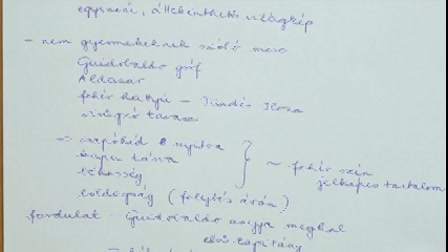 egyszerű, áttekinthető világkép
- nem gyermekeknek szóló mese
Guidobaldo gróf
Aldasar
fehér hattyú - Tündér Ilona
virágzó tavasz
⇒ sapóbéd nyitva
kapu tárva
békesség
boldogság (felejtés árán)
~ fehér szín
jelképes tartalom
fordulat - Guidobaldo anyja meghal
első kapitány